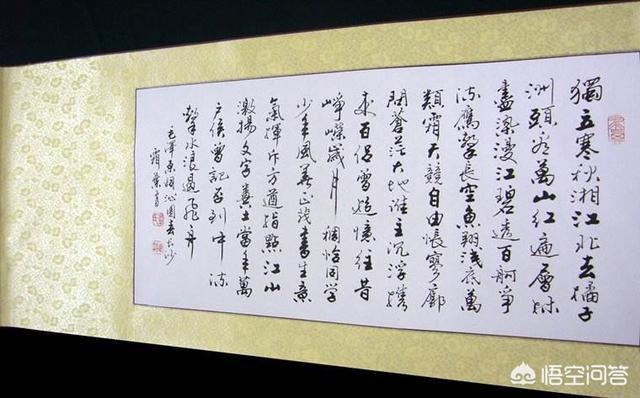 獨立寒秋湘江北去橘子
洲頭看萬山紅遍層林
盡染漫江碧透百舸爭
流鷹擊長空魚翔淺底萬
類霜天競自由悵寥廓
問蒼茫大地誰主沉浮攜
來百侶曾遊憶往昔
崢嶸歲月稠恰同學
少年風華正茂書生意
氣揮斥方遒指點江山
激揚文字糞土當年萬
户侯曾記否到中流
擊水浪遏飛舟
毛澤東詞沁園春長沙
霜葉書
悟空问答